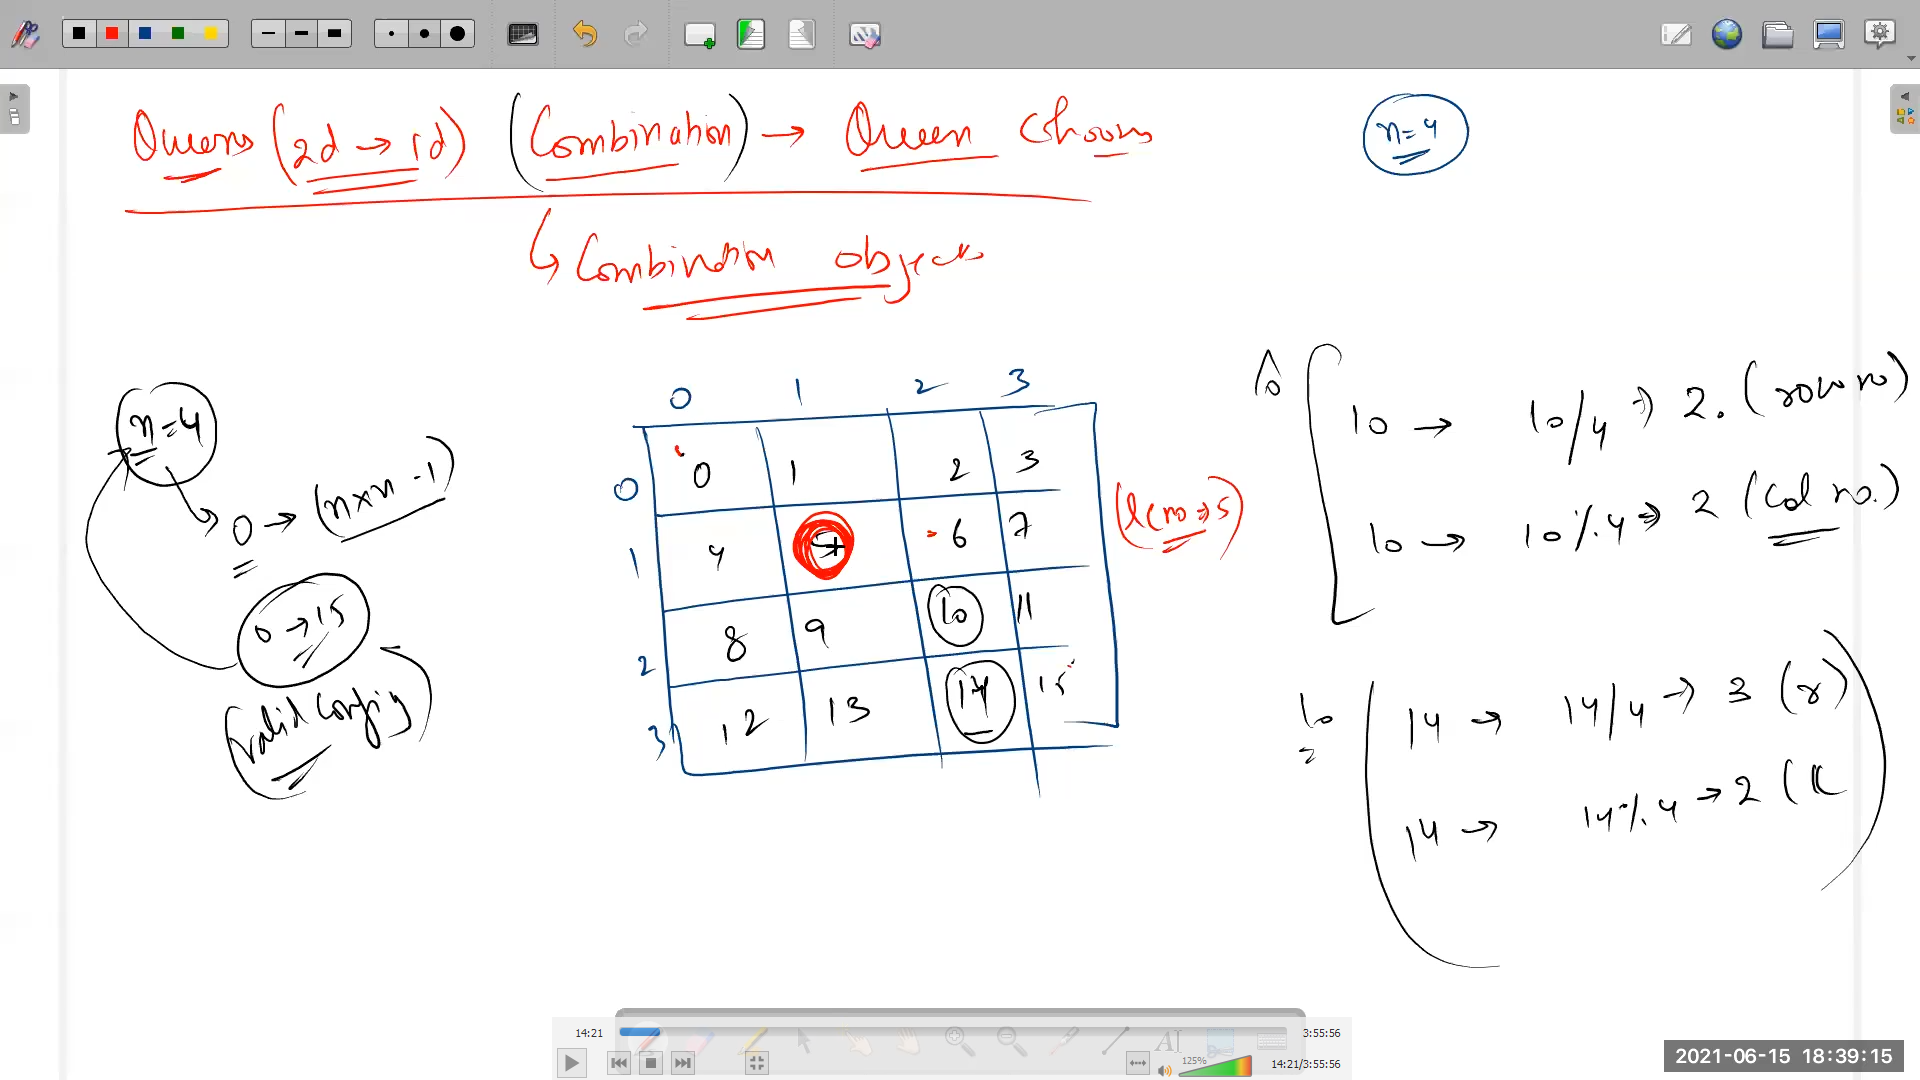 Queens (2d → 1d) (Combination) → Queen Chooses
n=4
↳ Combination objects
n=4
0 → (n×n -1)
0 → 15
Valid config
0 1 2 3
0 0 1 2 3
1 4 5 6 7
2 8 9 10 11
3 12 13 14 15
10 → 10/4 → 2. (row no)
10 → 10%4 → 2 (col no.)
14 → 14/4 → 3 (r)
14 → 14%4 → 2
14:21
3:55:56
125%
14:21/3:55:56
2021-06-15 18:39:15